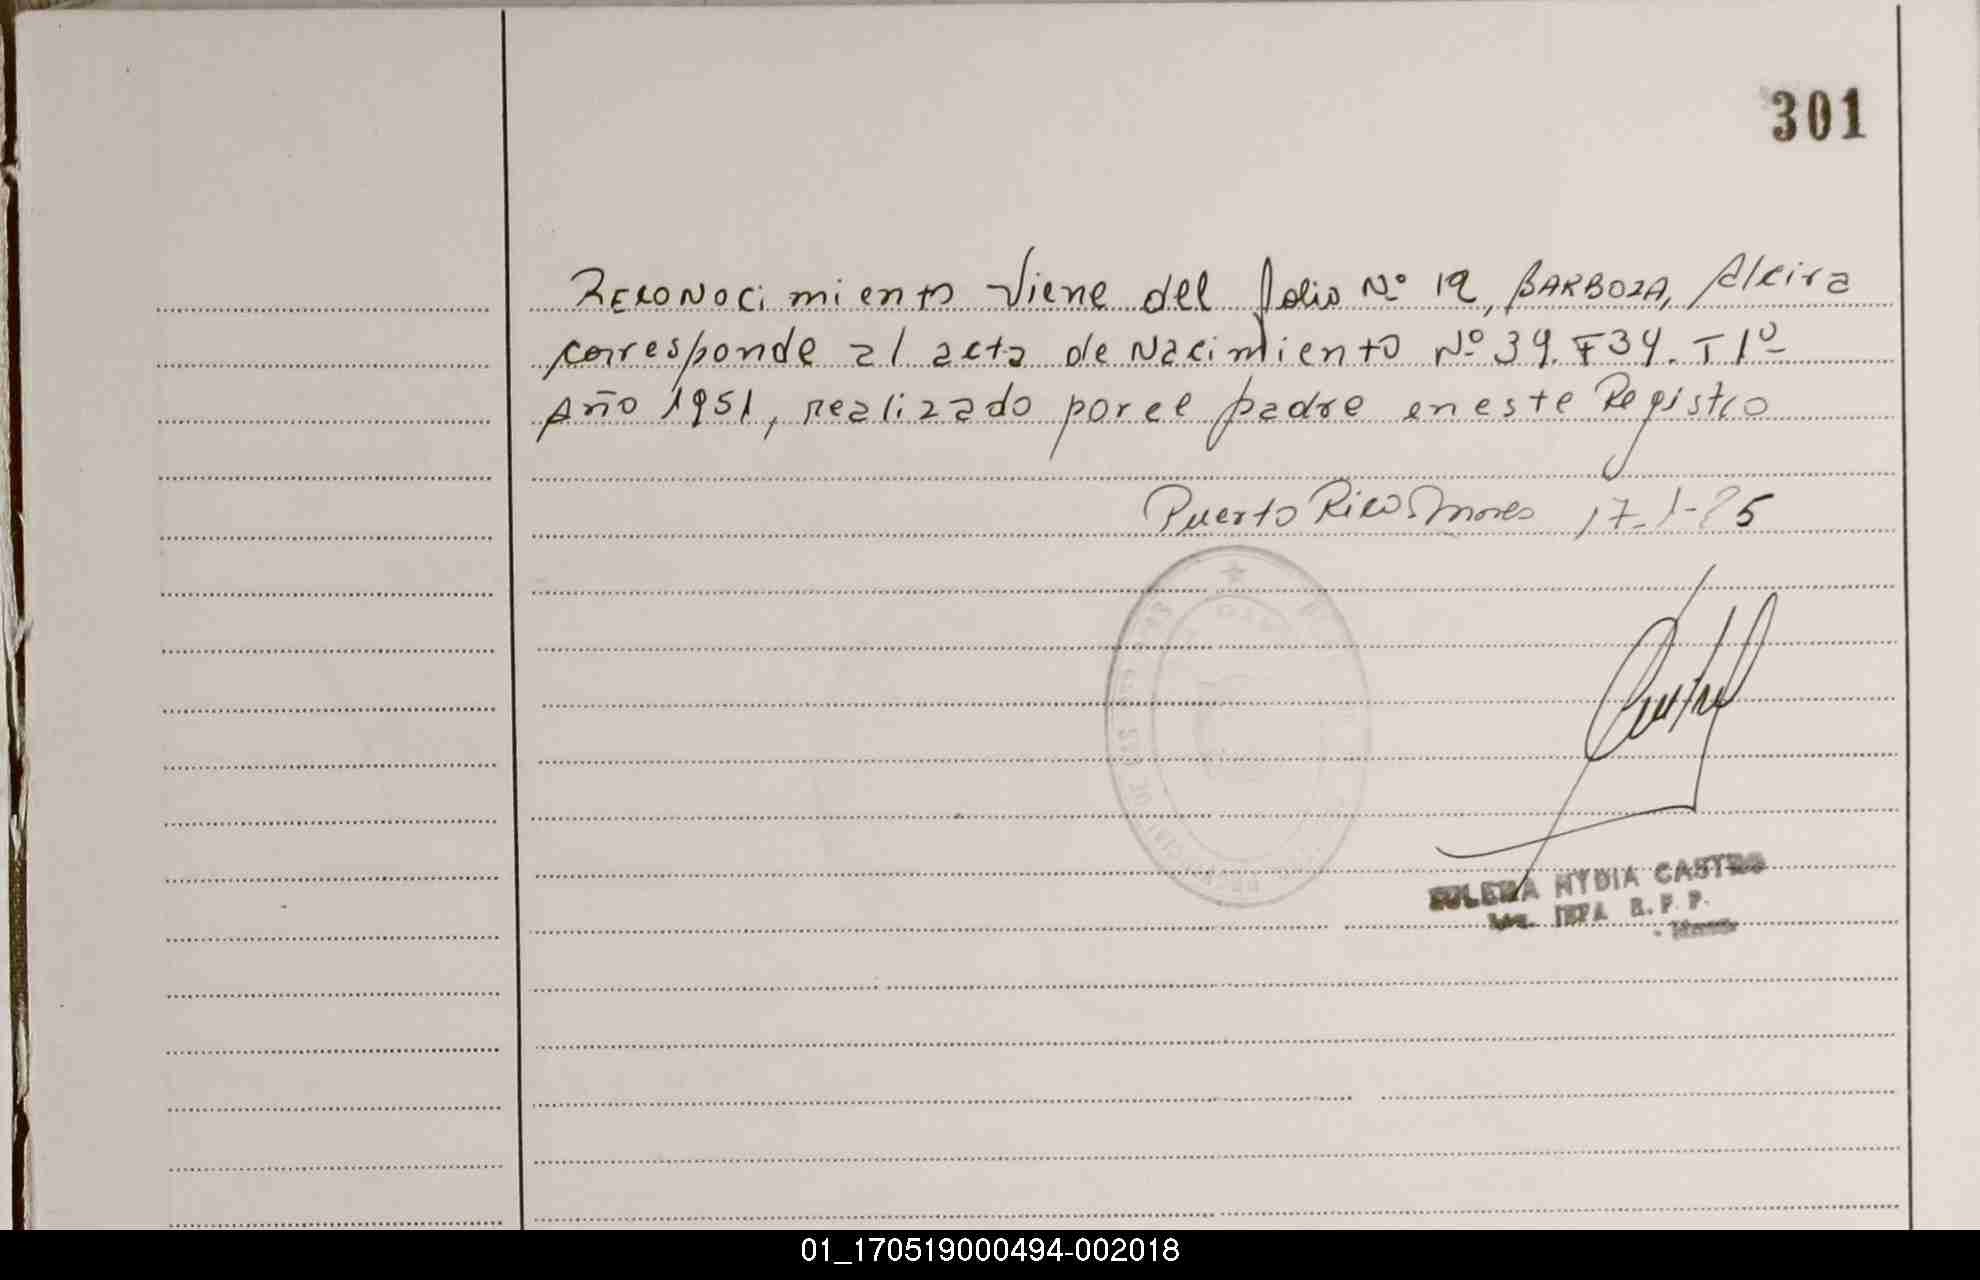 301
Reconocimiento viene del folio Nº 19, BARBOZA, Alcira
corresponde al acta de Nacimiento Nº 39. F34. T1º
Año 1951, realizado por el padre en este Registro
Puerto Rico Mnes 17-1-85
NYDIA CASTRO
R. P. P.
01_170519000494-002018